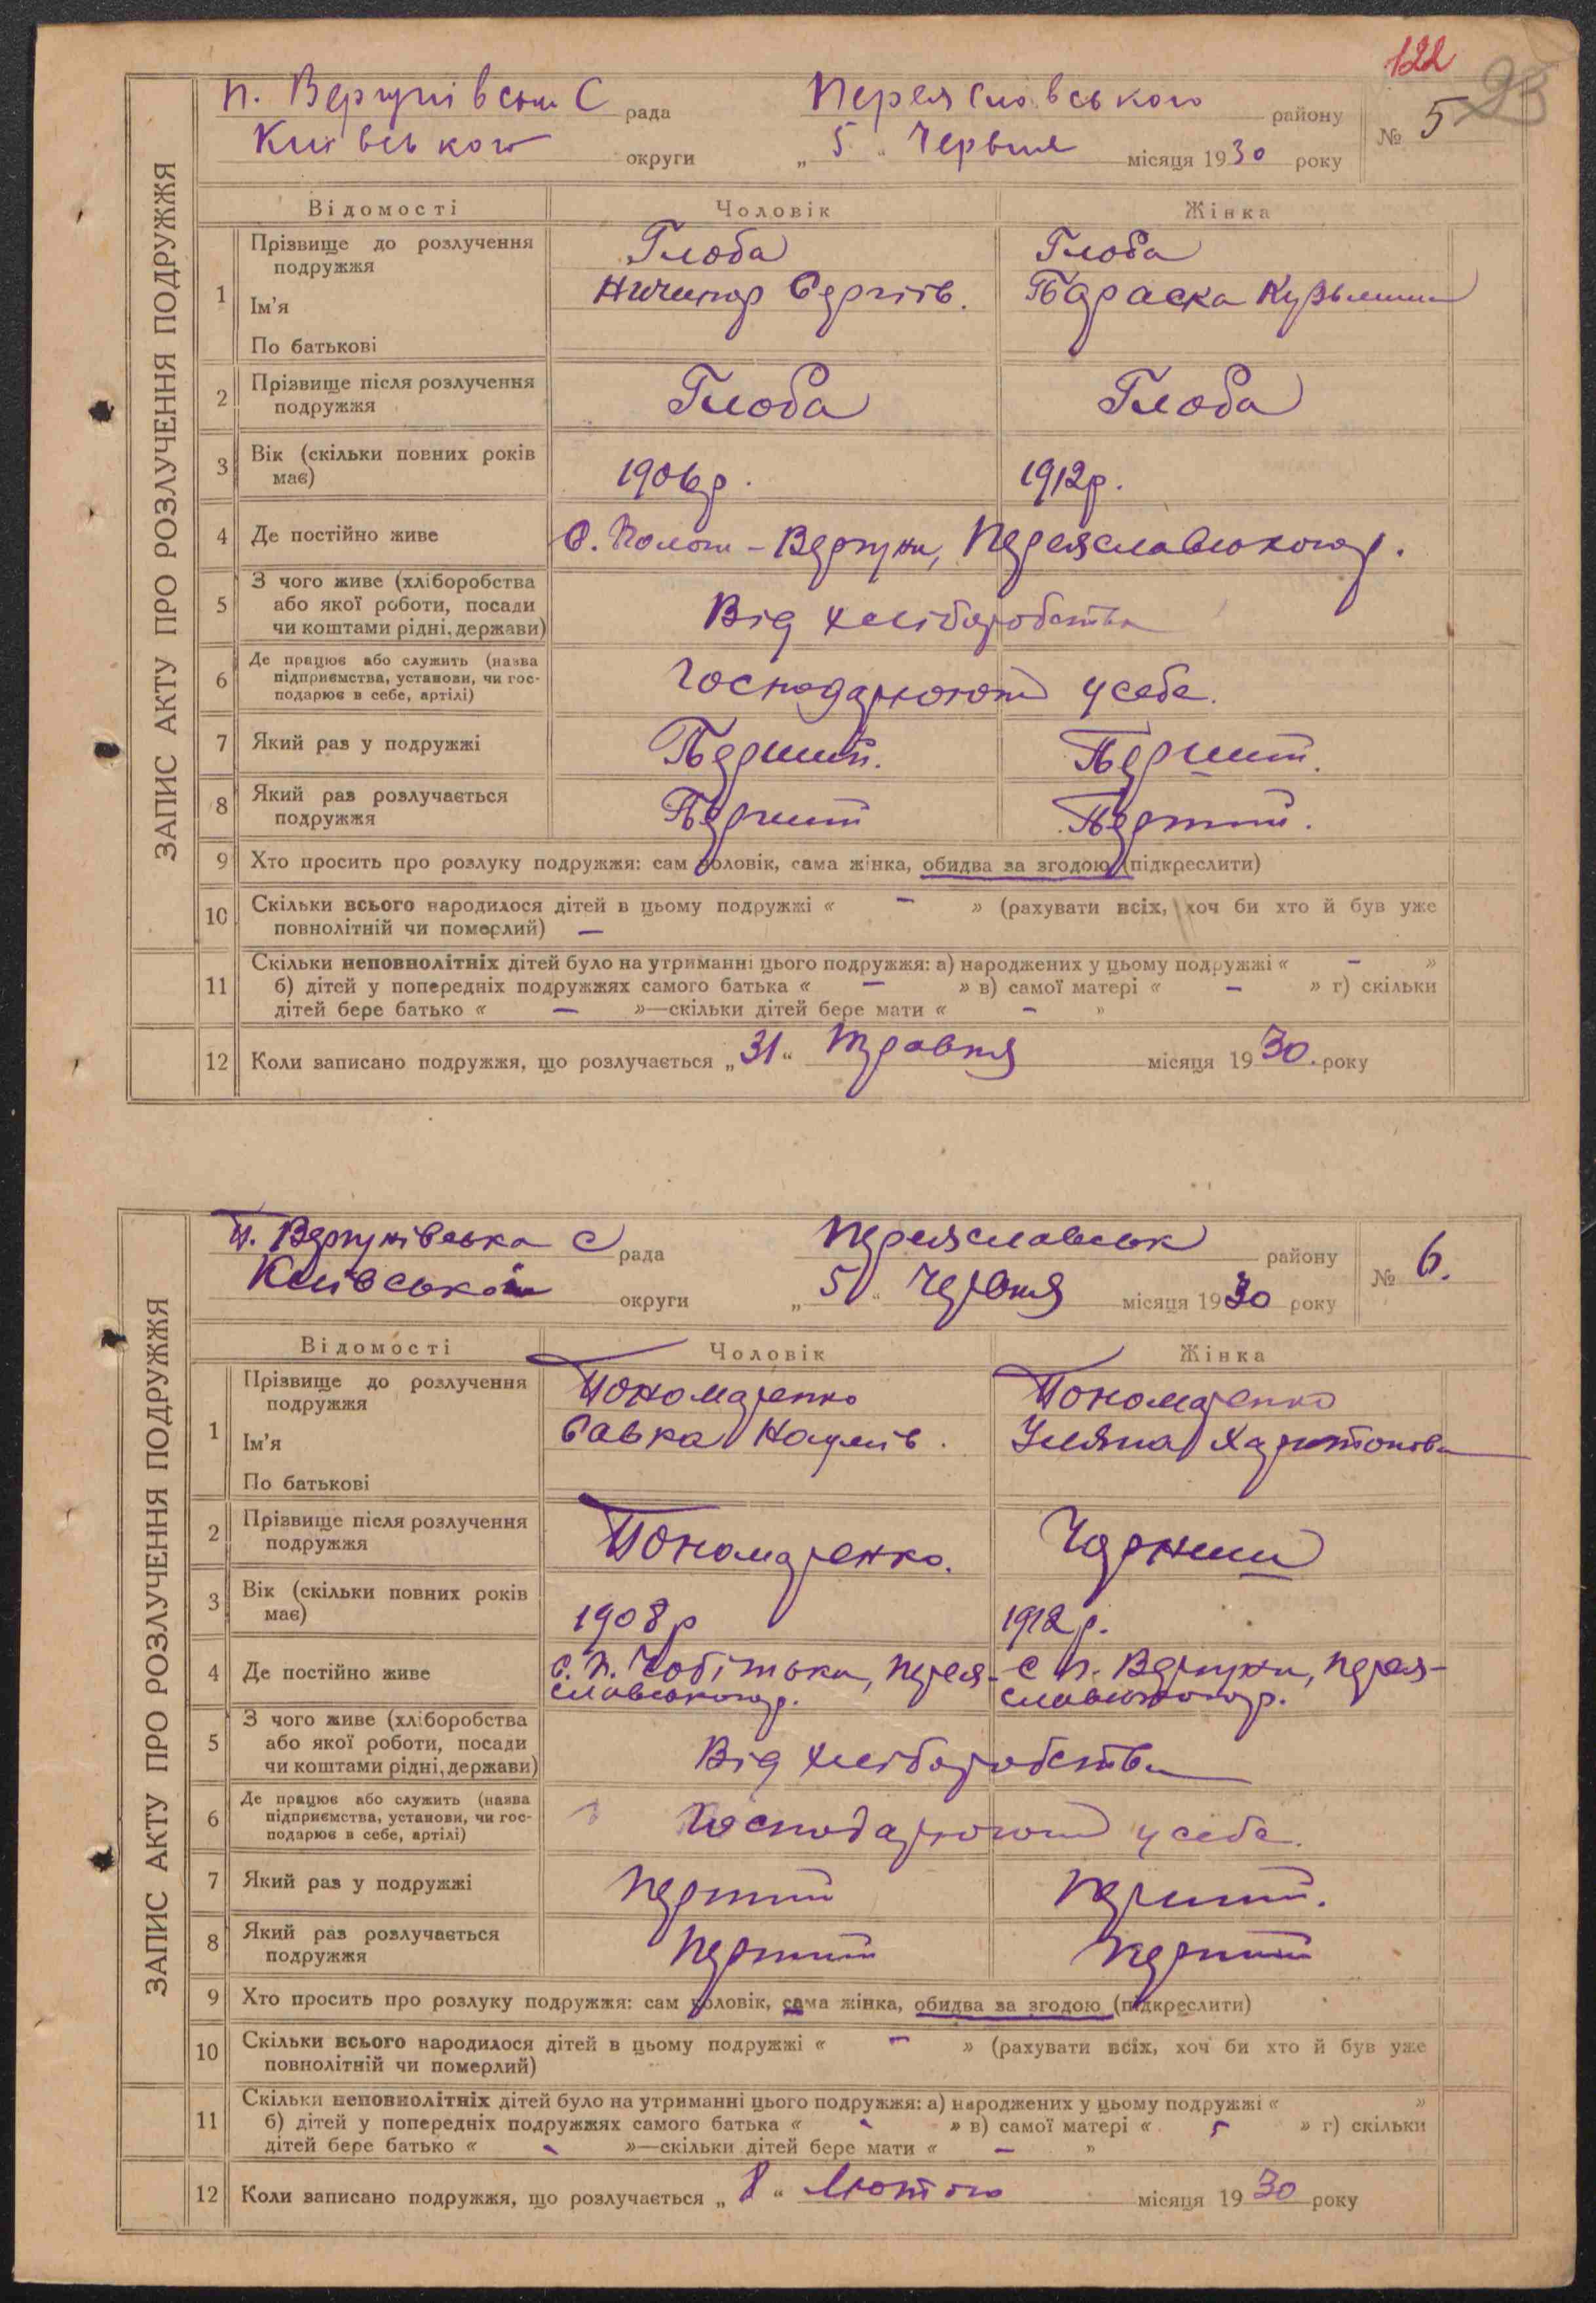 122
23
ЗАПИС АКТУ ПРО РОЗЛУЧЕННЯ ПОДРУЖЖЯ
П. Вергунівськ С рада Переяславського району № 5
Київського округи „ 5 “ Червня місяця 1930 року
Відомості Чоловік Жінка
1 Прізвище до розлучення подружжя Глоба Глоба
Ім'я Ничипор Сергіїв. Параска Кузьмин
По батькові
2 Прізвище після розлучення подружжя Глоба Глоба
3 Вік (скільки повних років має) 1906р. 1912р.
4 Де постійно живе С. Полог-Вергуни, Переяславського р.
5 З чого живе (хліборобства або якої роботи, посади чи коштами рідні, держави) Від хліборобства
6 Де працює або служить (назва підприємства, установи, чи господарює в себе, артілі) Господарюють у себе.
7 Який раз у подружжі Перший. Перший.
8 Який раз розлучається подружжя Перший Перший.
9 Хто просить про розлуку подружжя: сам чоловік, сама жінка, обидва за згодою (підкреслити)
10 Скільки всього народилося дітей в цьому подружжі « – » (рахувати всіх, хоч би хто й був уже
повнолітній чи померлий) –
11 Скільки неповнолітніх дітей було на утриманні цього подружжя: а) народжених у цьому подружжі « – »
б) дітей у попередніх подружжях самого батька « – » в) самої матері « – » г) скільки
дітей бере батько « – »—скільки дітей бере мати « – »
12 Коли записано подружжя, що розлучається „31“ травня місяця 1930. року
ЗАПИС АКТУ ПРО РОЗЛУЧЕННЯ ПОДРУЖЖЯ
П. Вергунівська С рада Переяславськ району № 6.
Київської округи „ 5 “ Червня місяця 1930 року
Відомості Чоловік Жінка
1 Прізвище до розлучення подружжя Пономаренко Пономаренко
Ім'я Савка Наумів. Уляна Харитонова
По батькові
2 Прізвище після розлучення подружжя Пономаренко.
3 Вік (скільки повних років має) 1908р 1912р.
4 Де постійно живе с. П. Чобітьки, Перея- с П. Вергуни, Перея-
славського р. славського р.
5 З чого живе (хліборобства або якої роботи, посади чи коштами рідні, держави) Від хліборобства
6 Де працює або служить (назва підприємства, установи, чи господарює в себе, артілі) Господарюють у себе.
7 Який раз у подружжі Перший Перший.
8 Який раз розлучається подружжя Перший Перший
9 Хто просить про розлуку подружжя: сам чоловік, сама жінка, обидва за згодою (підкреслити)
10 Скільки всього народилося дітей в цьому подружжі « – » (рахувати всіх, хоч би хто й був уже
повнолітній чи померлий)
11 Скільки неповнолітніх дітей було на утриманні цього подружжя: а) народжених у цьому подружжі « »
б) дітей у попередніх подружжях самого батька « - » в) самої матері « - » г) скільки
дітей бере батько « - »—скільки дітей бере мати « – »
12 Коли записано подружжя, що розлучається „ 8 “ Лютого місяця 1930 року